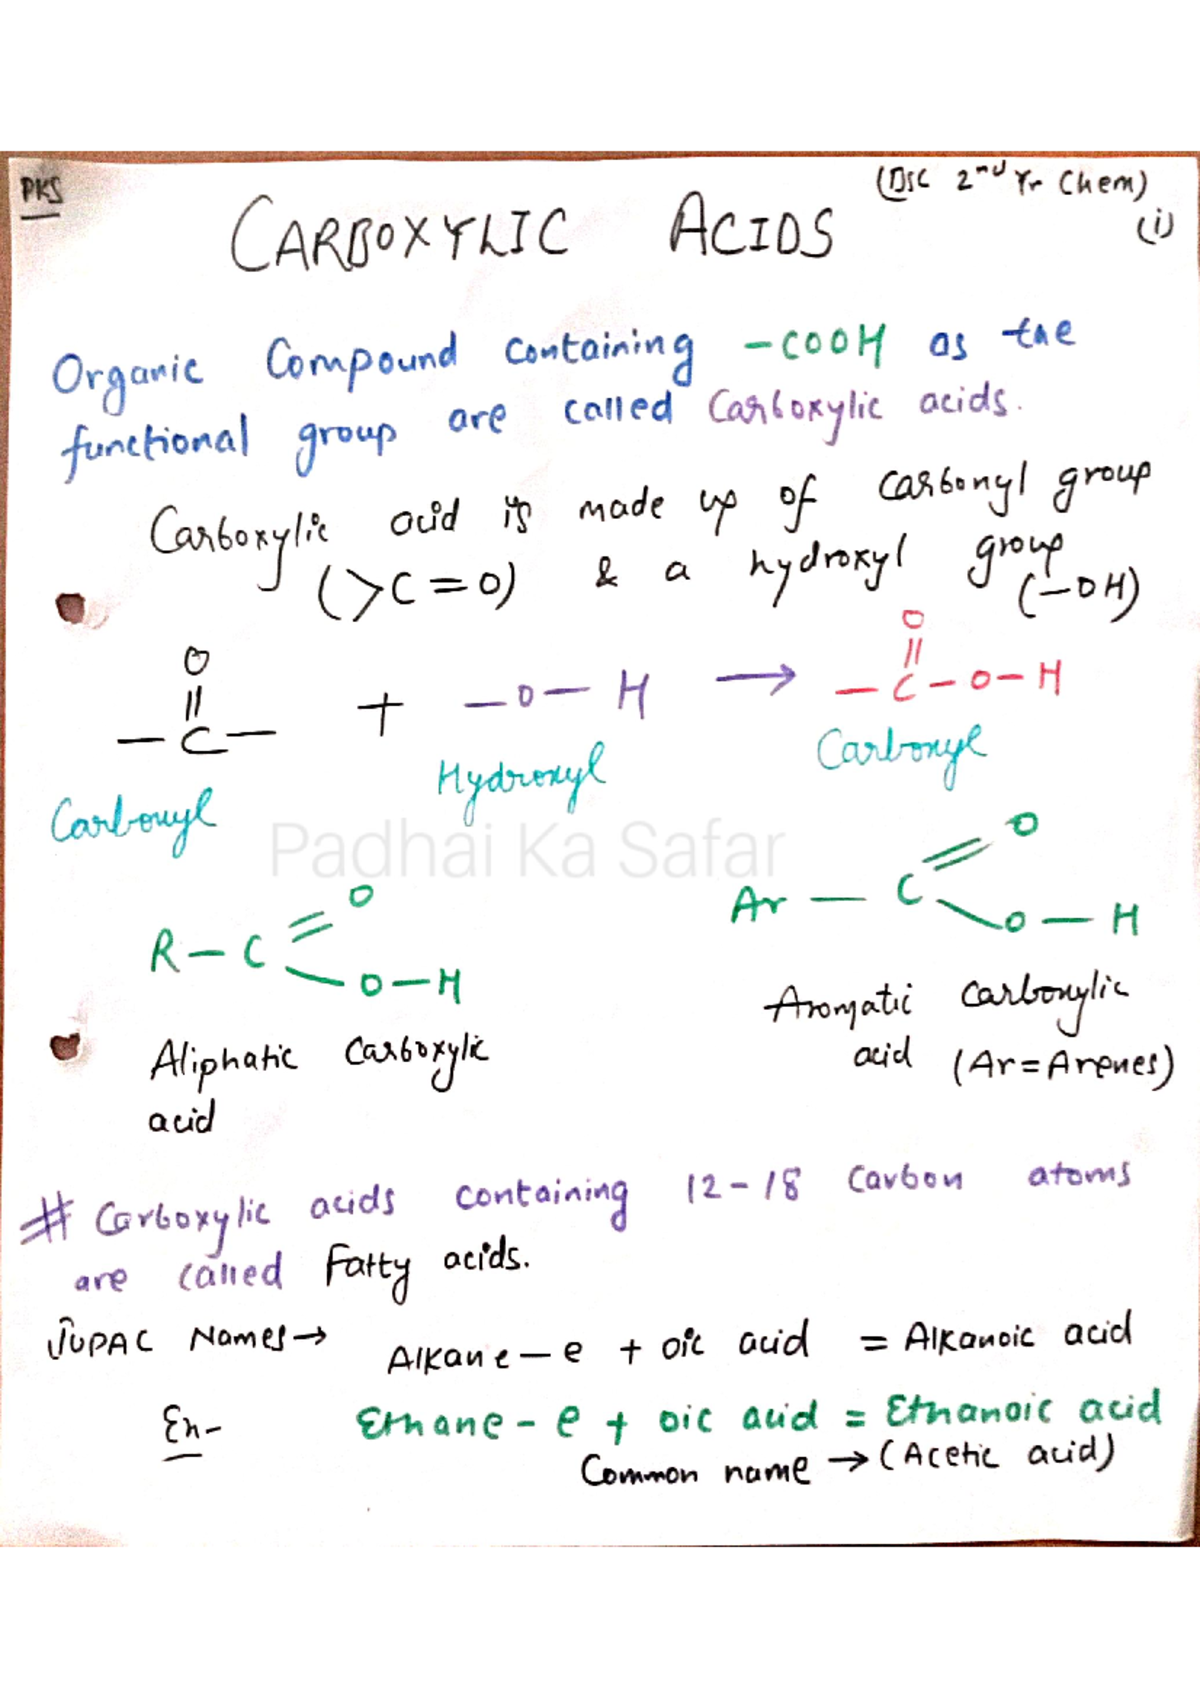 PKS
(BSC 2nd Yr Chem)
CARBOXYLIC ACIDS
(i)
Organic Compound containing -COOH as the
functional group are called Carboxylic acids.
Carboxylic acid is made up of carbonyl group
(>C=O) & a hydroxyl group
(-OH)
O
||
-C-
+ -O-H →
O
||
-C-O-H
Carbonyl
Hydroxyl
Carboxyl
Padhai Ka Safar
R-C
=O
O-H
Ar-C
=O
O-H
Aliphatic Carboxylic
acid
Aromatic Carboxylic
acid (Ar=Arenes)
# Carboxylic acids containing 12-18 Carbon atoms
are called Fatty acids.
IUPAC Names→ Alkane-e + oic acid = Alkanoic acid
Ex- Ethane-e + oic acid = Ethanoic acid
Common name → (Acetic acid)